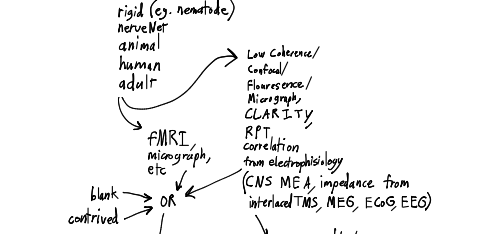 rigid (eg. nematode)
nerveNet
animal
human
adult
Low Coherence/
Confocal/
Flouresence/
Micrograph,
CLARITY,
RPT,
correlation
from electrophisiology
(CNS MEA, impedance from
interlaced TMS, MEG, ECoG, EEG)
fMRI,
micrograph,
etc
blank
contrived
OR